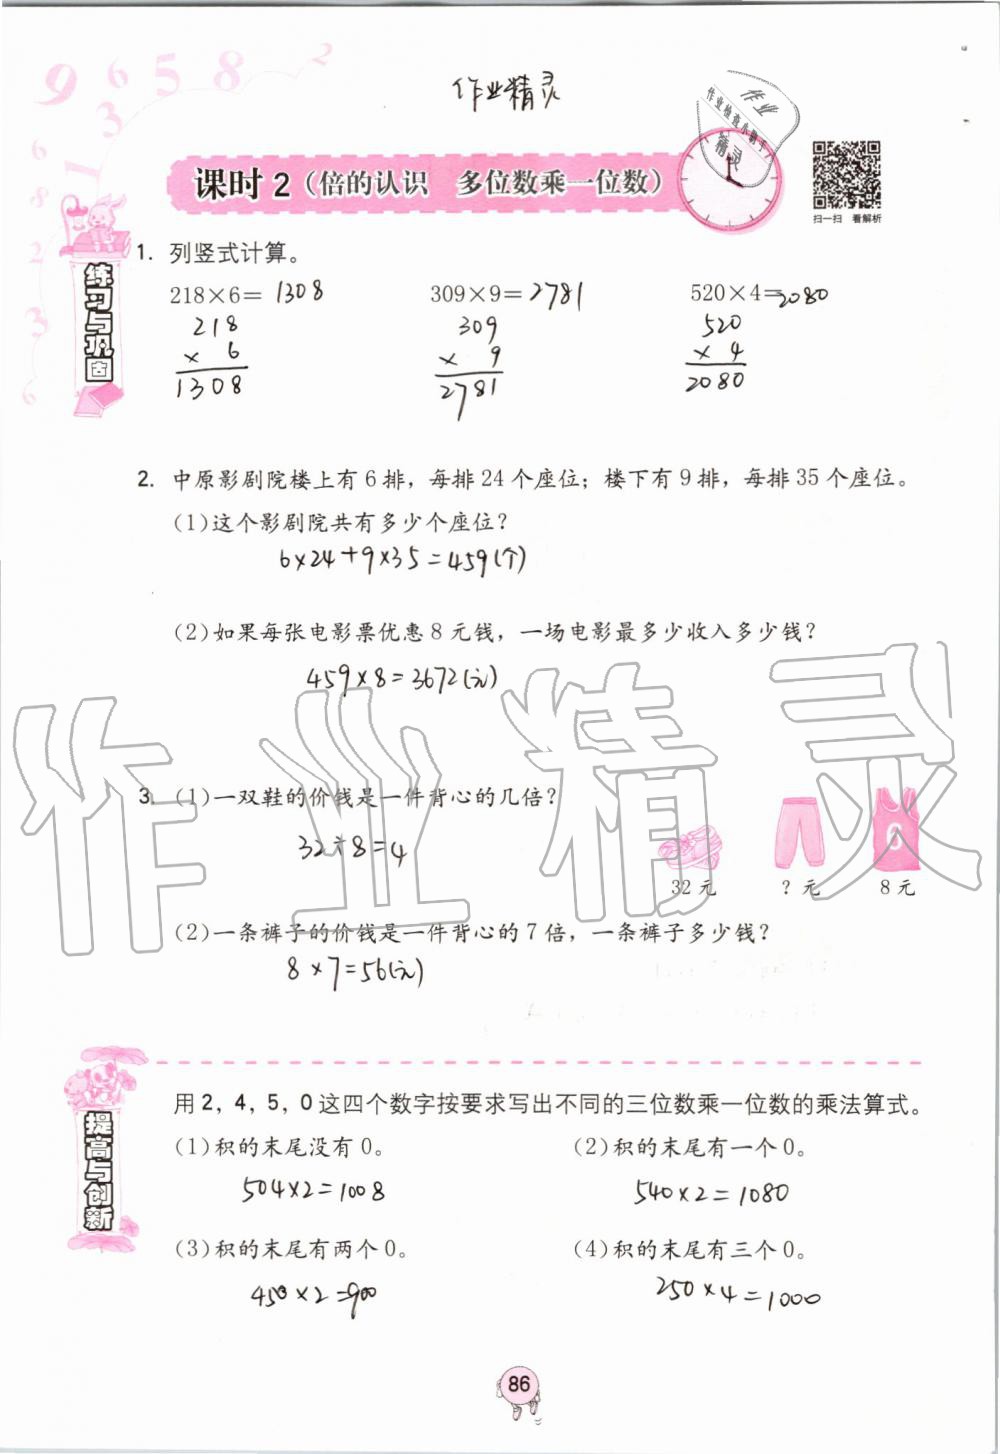 作业精灵
作业
作业检查小助手
精灵
课时2(倍的认识 多位数乘一位数)
扫一扫 看解析
练习与巩固
1. 列竖式计算。
218×6=1308 309×9=2781 520×4=2080
218 309 520
× 6 × 9 × 4
1308 2781 2080
2. 中原影剧院楼上有6排，每排24个座位；楼下有9排，每排35个座位。
(1)这个影剧院共有多少个座位？
6×24+9×35=459(个)
(2)如果每张电影票优惠8元钱，一场电影最多少收入多少钱？
459×8=3672(元)
作业精灵
3. (1)一双鞋的价钱是一件背心的几倍？
32÷8=4
32元 ？元 8元
(2)一条裤子的价钱是一件背心的7倍，一条裤子多少钱？
8×7=56(元)
提高与创新
用2，4，5，0这四个数字按要求写出不同的三位数乘一位数的乘法算式。
(1)积的末尾没有0。 (2)积的末尾有一个0。
504×2=1008 540×2=1080
(3)积的末尾有两个0。 (4)积的末尾有三个0。
450×2=900 250×4=1000
86